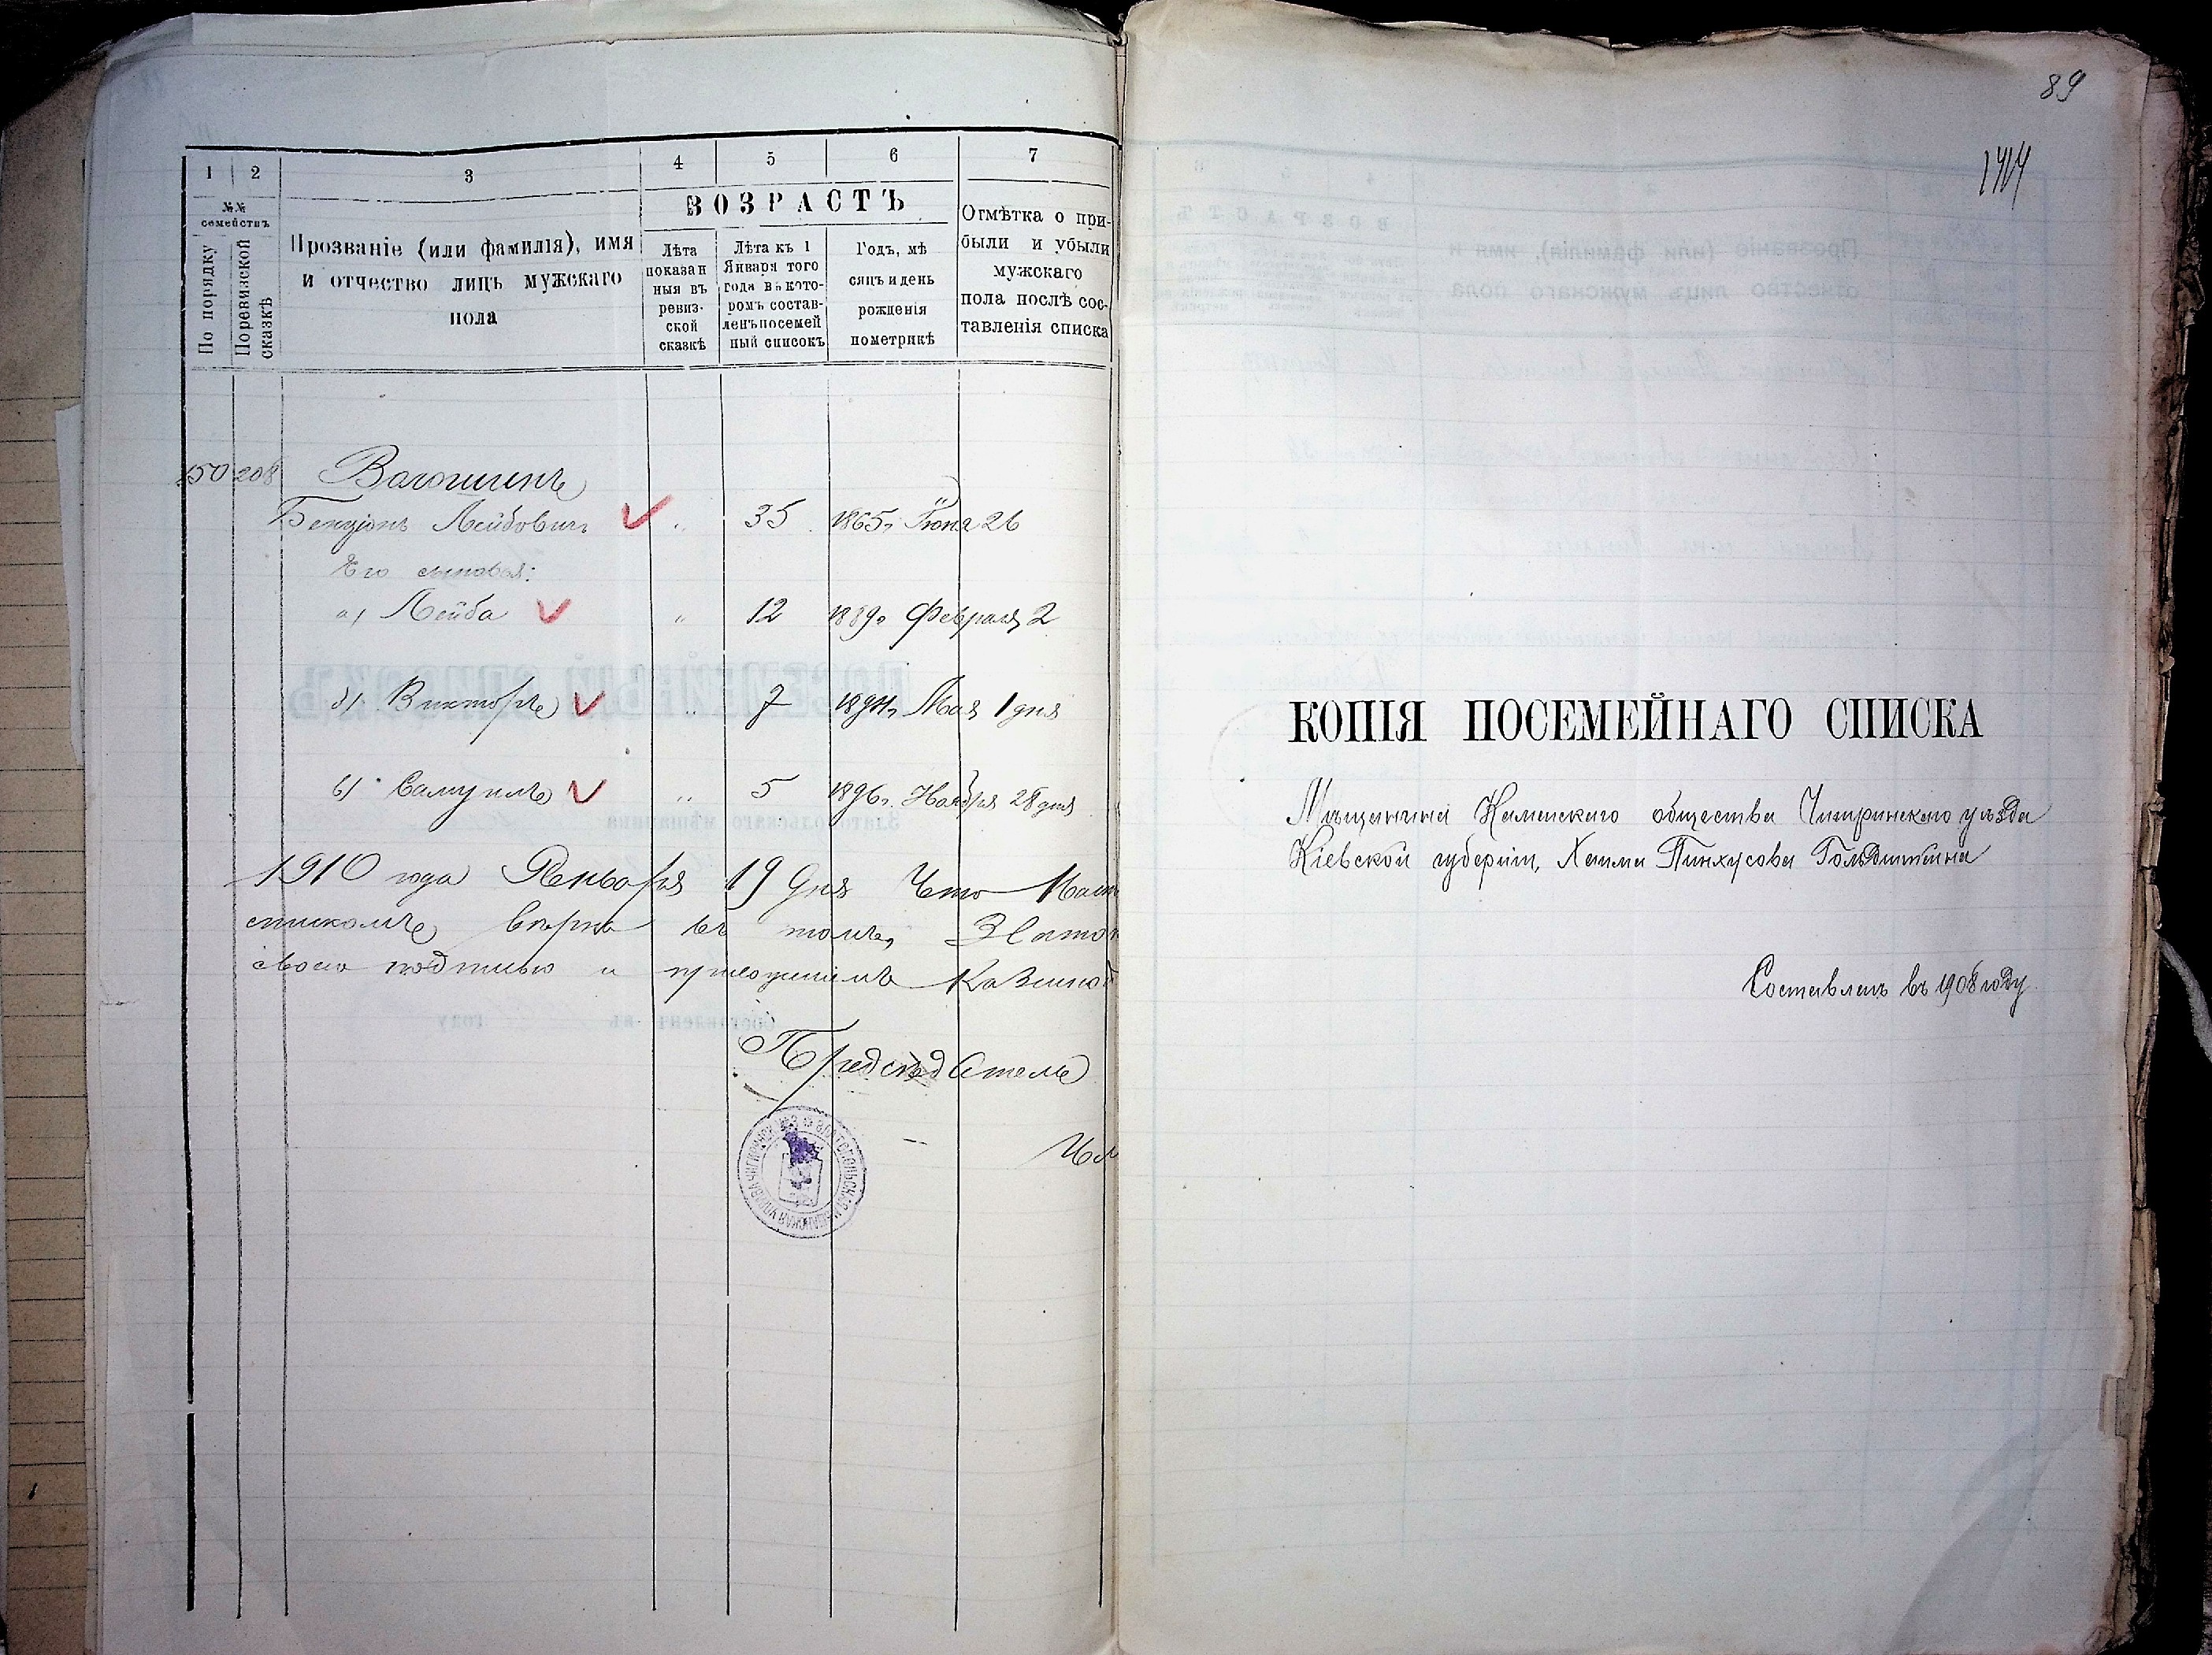 1 2 3 4 5 6 7
№№ семействъ
По порядку
По ревизской сказкѣ
Прозваніе (или фамилія), имя
и отчество лицъ мужскаго
пола
ВОЗРАСТЪ
Лѣта
показан
ныя въ
ревиз-
ской
сказкѣ
Лѣта къ 1
Января того
года въ кото-
ромъ состав-
ленъ посемей
ный списокъ
Годъ, мѣ
сяцъ и день
рожденія
по метрикѣ
Отмѣтка о при-
были и убыли
мужскаго
пола послѣ сос-
тавленія списка
150 208
Бенціонъ Лейбовичъ " 35 1865г. Іюня 26
Его сыновья:
а) Лейба " 12 1889г. Февраля 2
б) Викторъ " 7 1894г. Мая 1 дня
в) Самуилъ " 5 1896г. Ноября 28 дня
1910 года Января 19 дня Что
спискомъ вѣрна въ томъ, Златоп
своею подписью и приложеніемъ Казенной
Предсѣдатель
89
КОПІЯ ПОСЕМЕЙНАГО СПИСКА
Мѣщанина Каменскаго общества Чигиринскаго уѣзда
Кіевской губерніи, Хаима Пинхусова Гольдштейна
Составленъ въ 1908 году